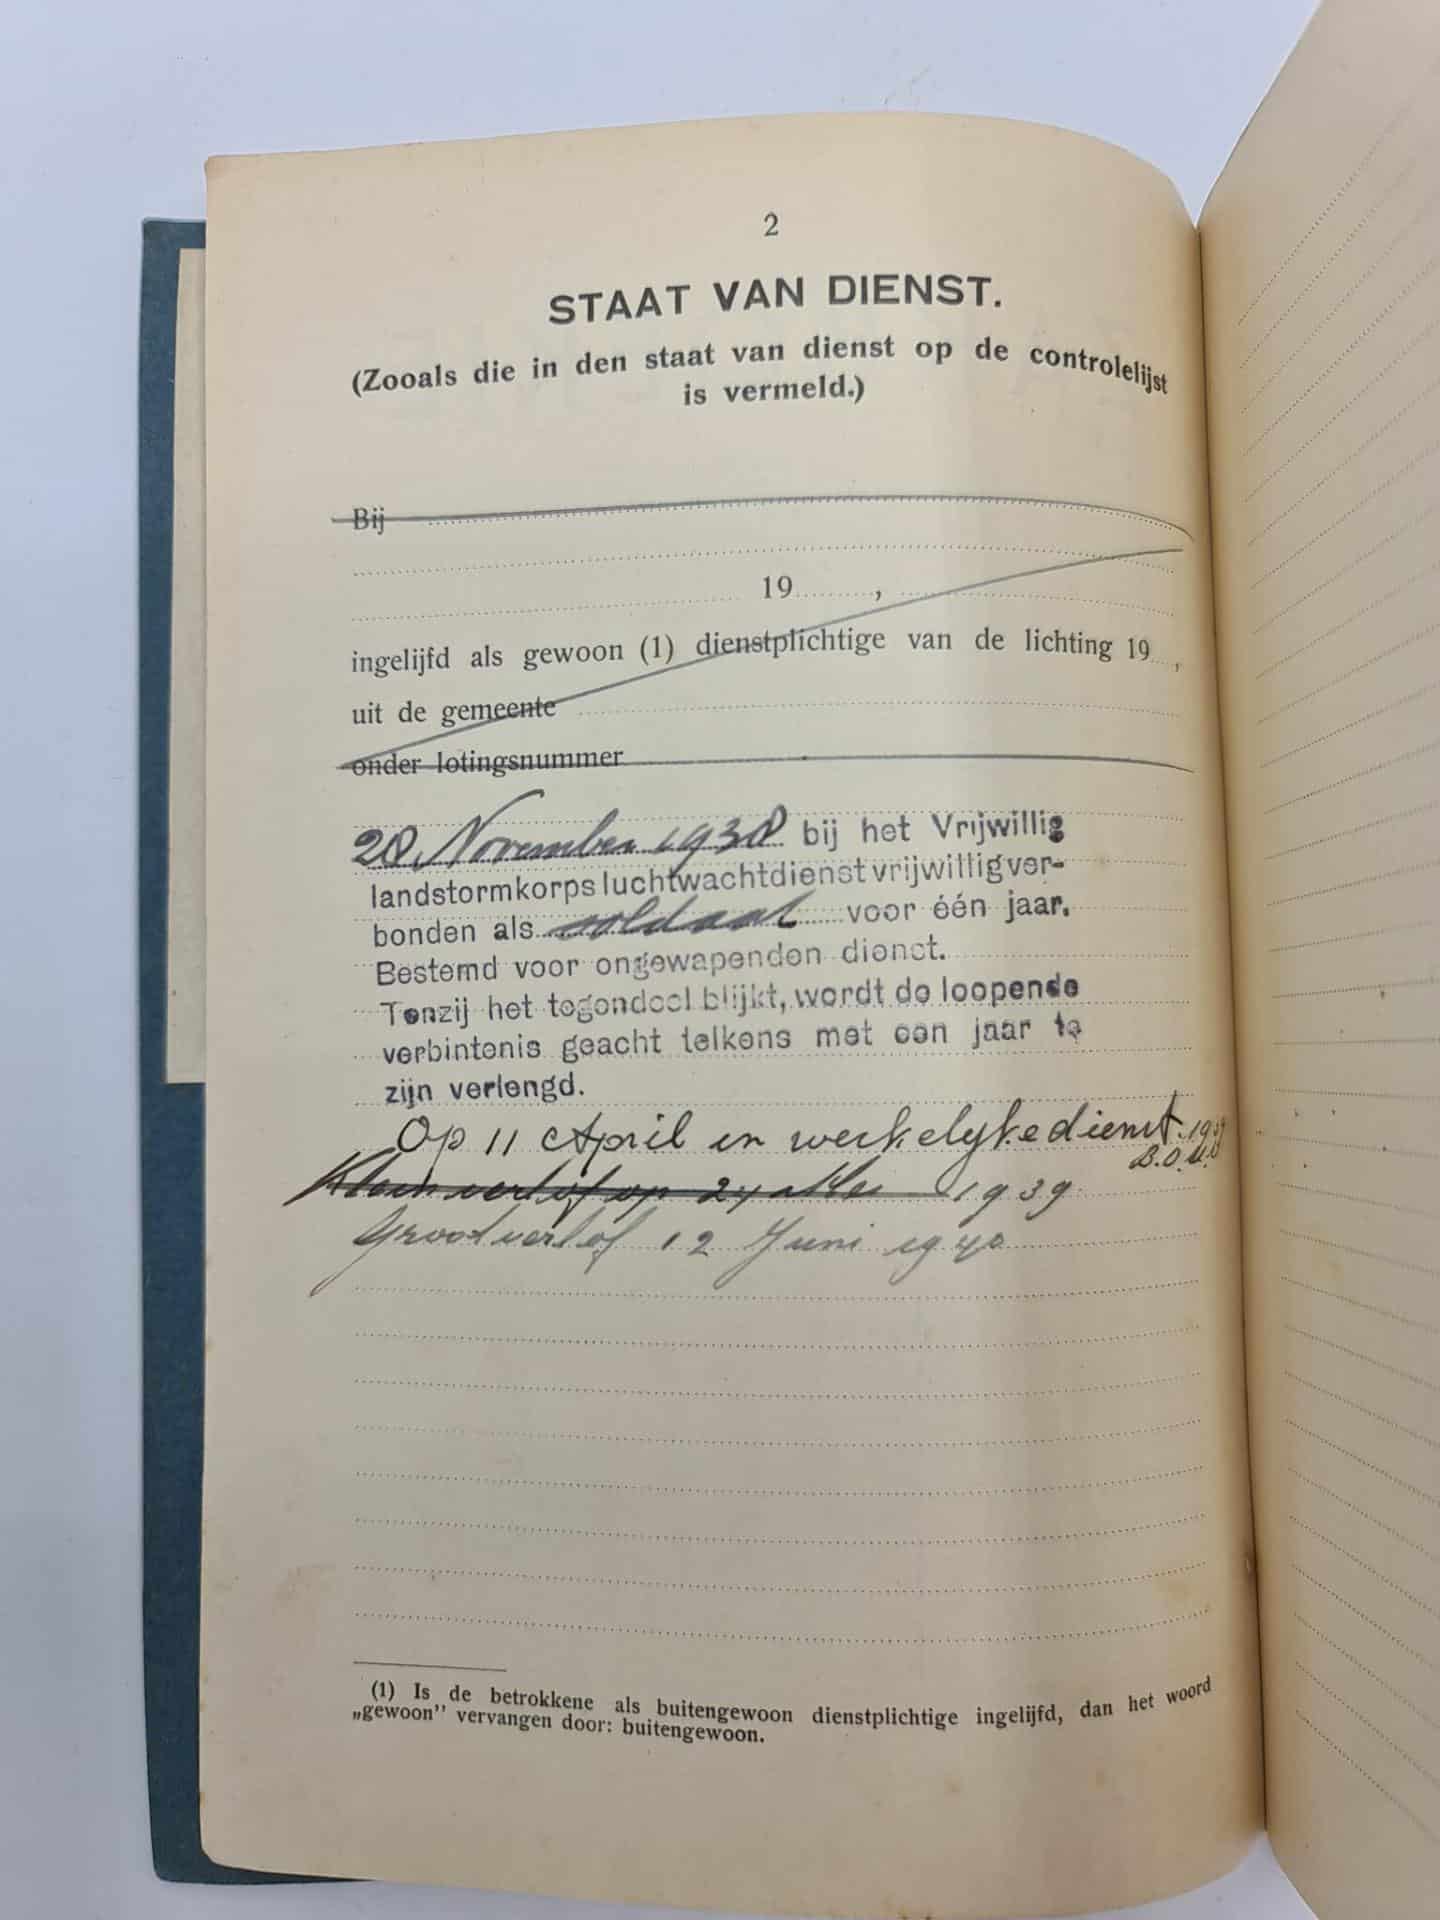 2
STAAT VAN DIENST.
(Zooals die in den staat van dienst op de controlelijst
is vermeld.)
Bij
19 ,
ingelijfd als gewoon (1) dienstplichtige van de lichting 19 ,
uit de gemeente
onder lotingsnummer
28 November 1938 bij het Vrijwillig
landstormkorps luchtwachtdienst vrijwillig ver-
bonden als soldaat voor één jaar.
Bestemd voor ongewapenden dienst.
Tenzij het tegendeel blijkt, wordt de loopende
verbintenis geacht telkens met een jaar te
zijn verlengd.
Op 11 April in werkelyke dienst 1939
B.O.U.V.
Klein verlof op 24 1939
Groot verlof 12 Juni 1940
(1) Is de betrokkene als buitengewoon dienstplichtige ingelijfd, dan het woord
„gewoon" vervangen door: buitengewoon.